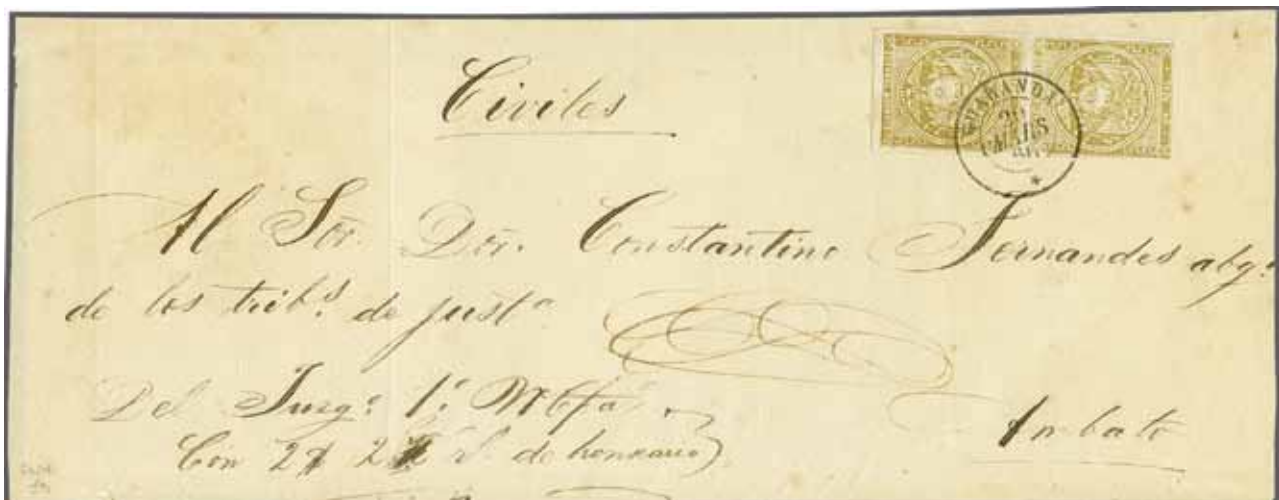 Civiles
GUARANDA
MARS
Al Sor. Dor. Constantino Fernandes abgo.
de los tribs. de justa.
Del Juzgo. 1o.
Con 2 2 de honrario
Ambato